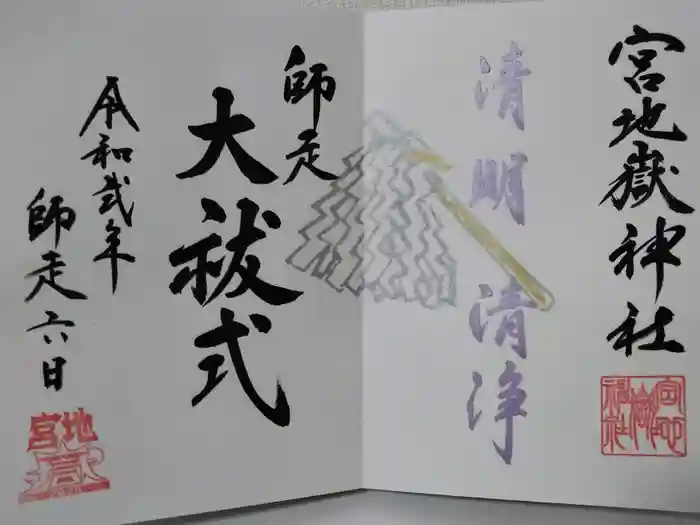 宮地嶽神社
清明 清浄
師走
大祓式
令和弐年
師走六日
宮地嶽神社
宮地嶽